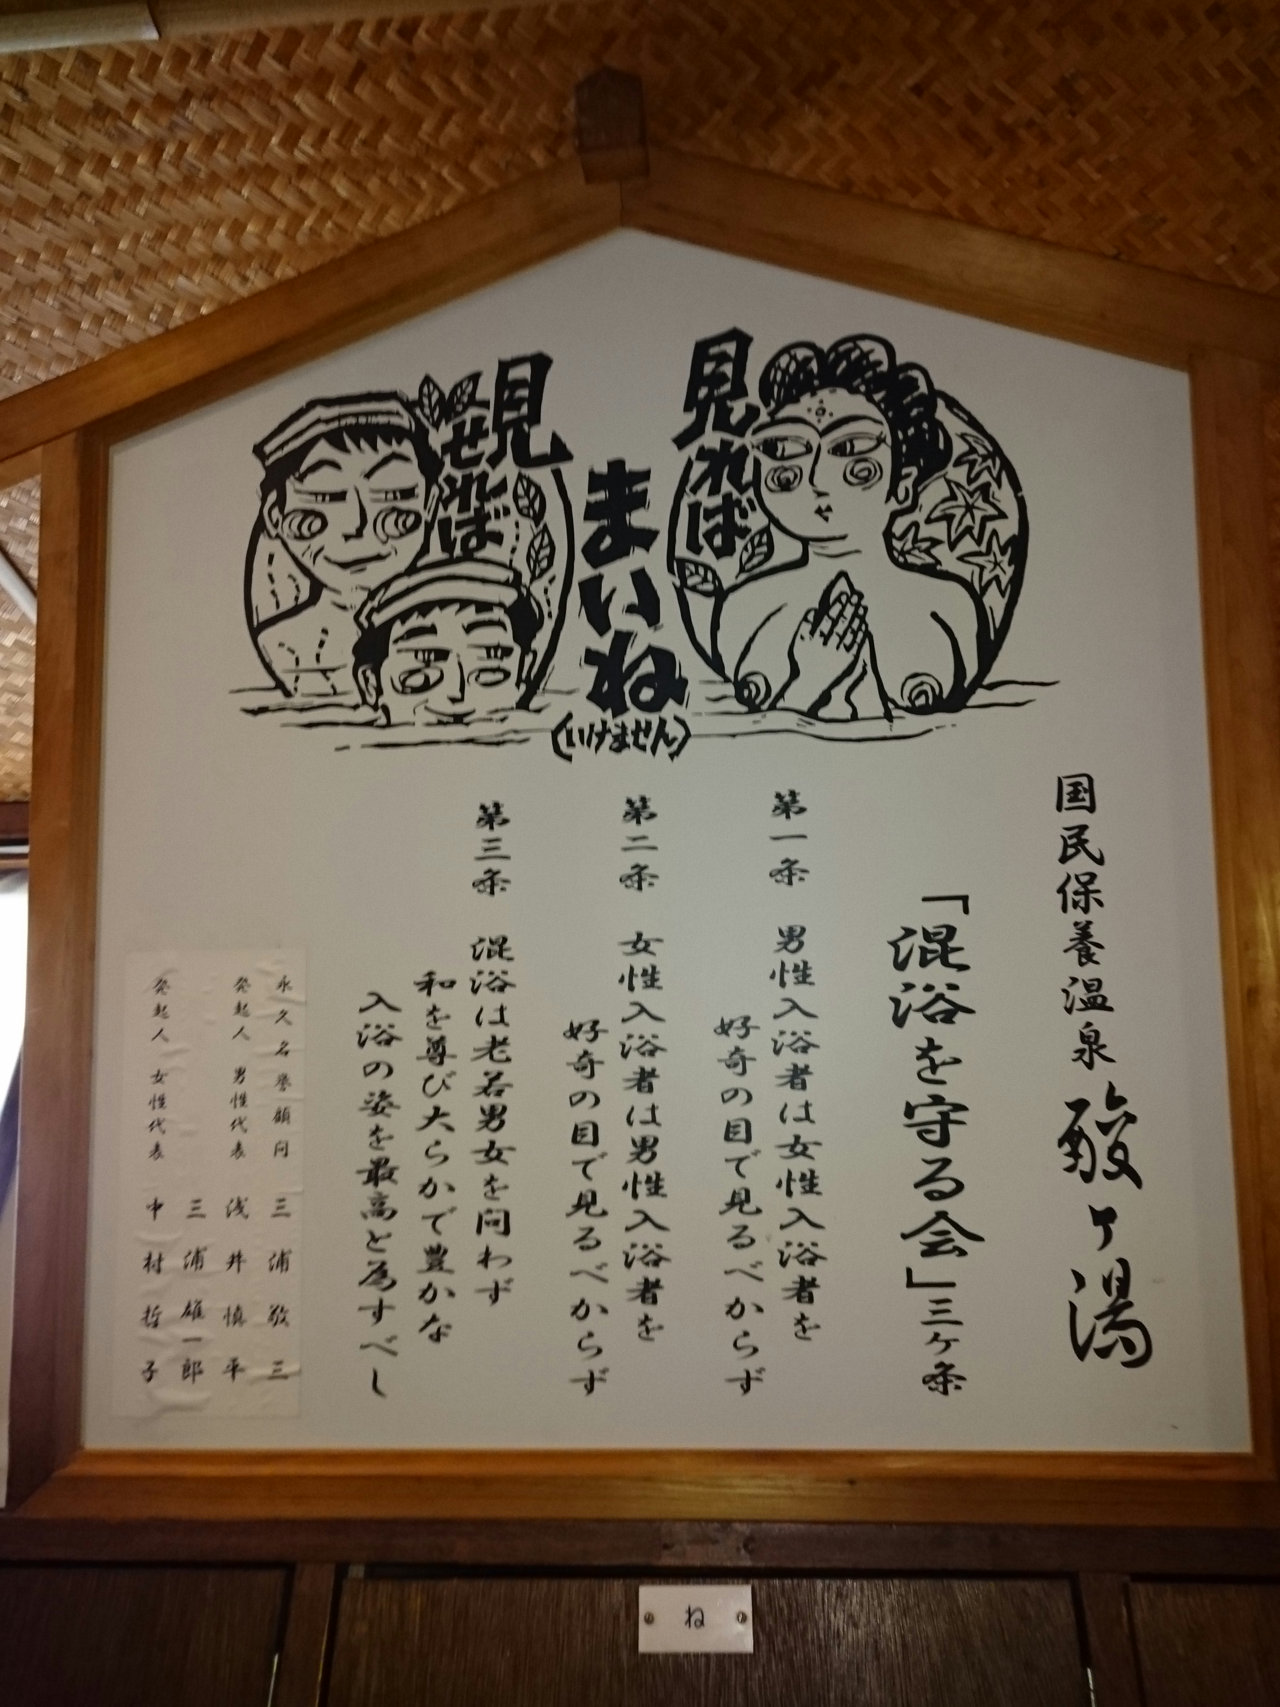 見れば
見せれば
まいね
(いけません)
国民保養温泉 酸ヶ湯
「混浴を守る会」三ヶ条
第一条 男性入浴者は女性入浴者を
好奇の目で見るべからず
第二条 女性入浴者は男性入浴者を
好奇の目で見るべからず
第三条 混浴は老若男女を問わず
和を尊び大らかで豊かな
入浴の姿を最高と為すべし
永久名誉顧問 三浦敬三
発起人 男性代表 浅井慎平
三浦雄一郎
発起人 女性代表 中村哲子
ね